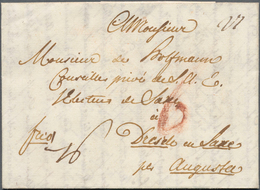 A Monsieur
Monsieur de Hoffmann
Conseiller privé de S. A. E.
l'Electeur de Saxe
à
Dresde en Saxe
per Augusta